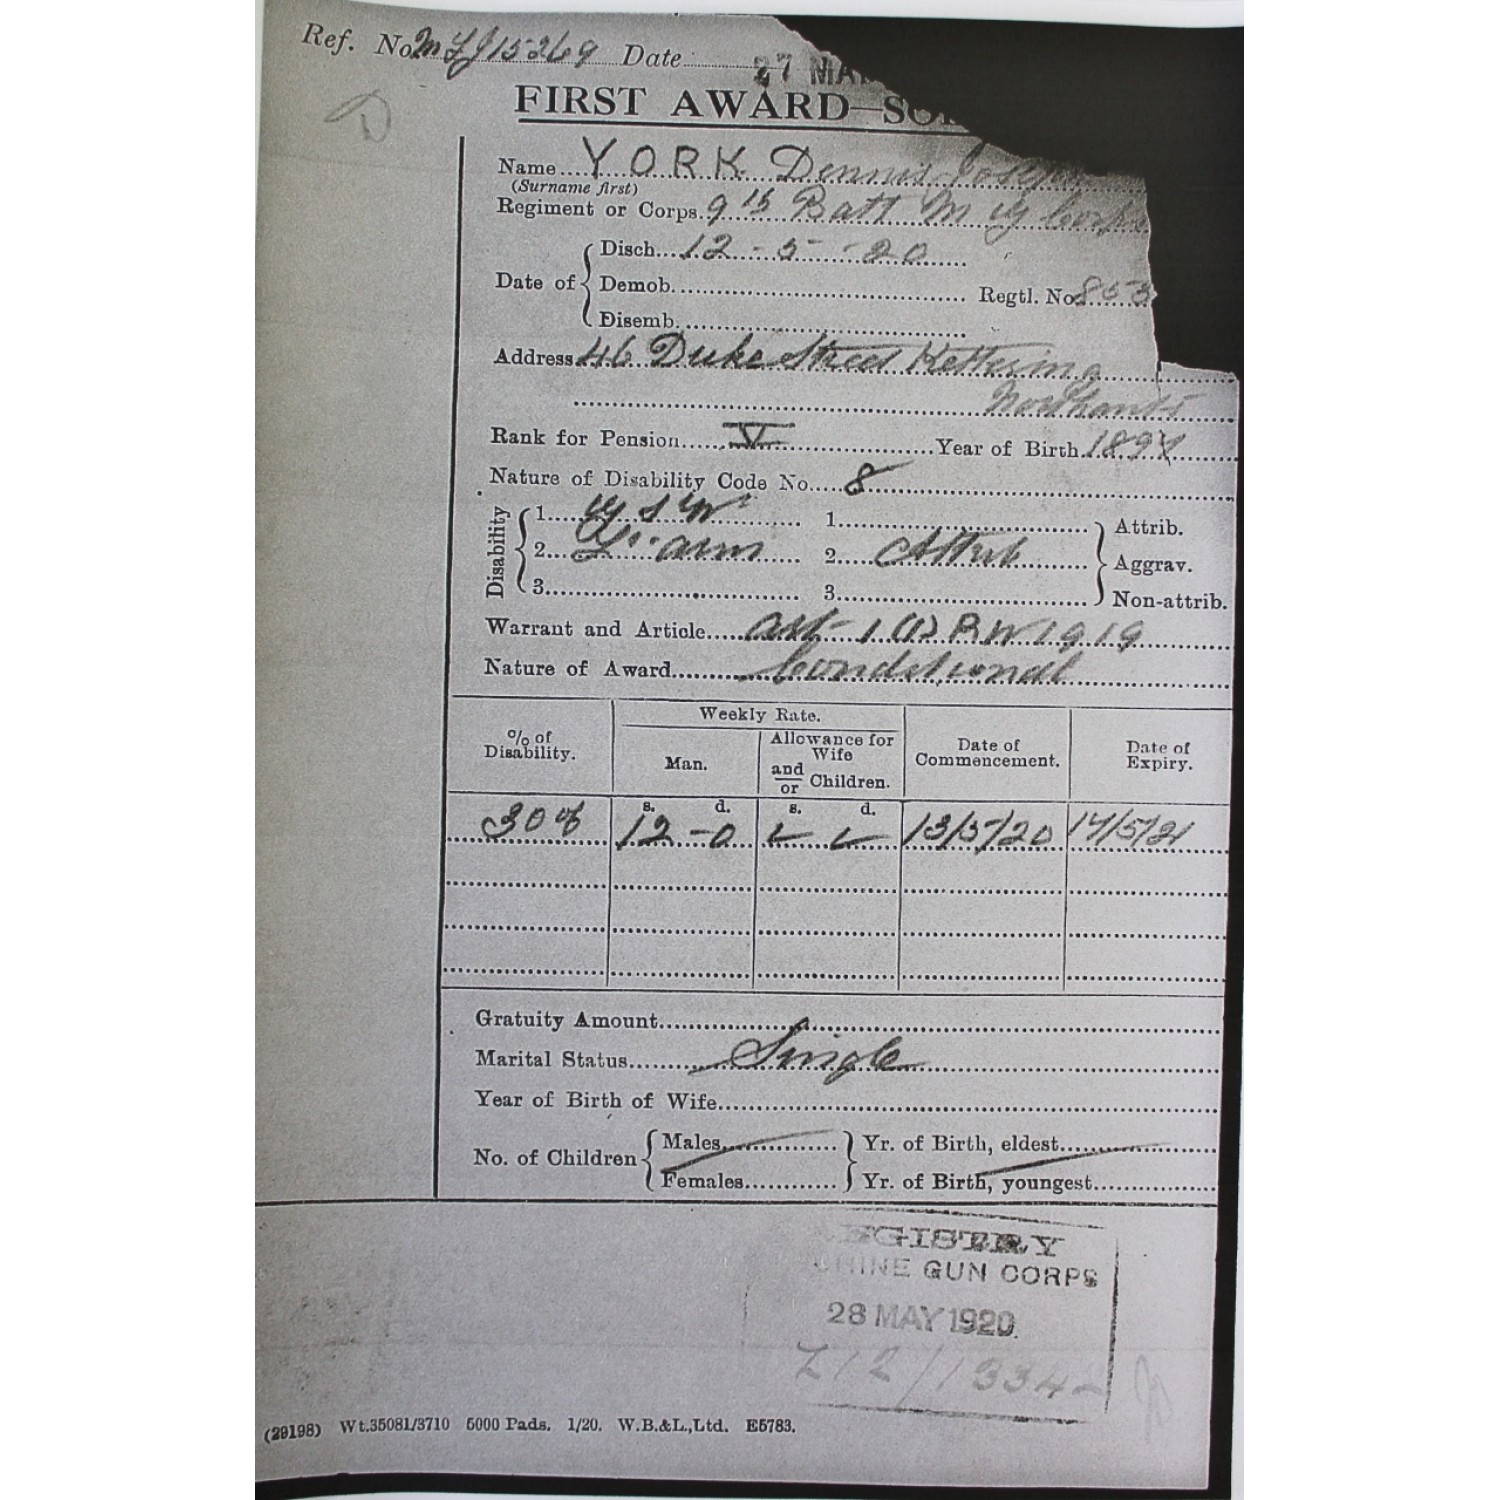 Ref. No. M 15269 Date 27 MA
FIRST AWARD—SO
Name YORK Dennis Joseph
(Surname first)
Regiment or Corps. 9th Batt M G Corps
Date of
Disch. 12 - 5 - 20
Demob.
Regtl. No 853
Disemb.
Address 46 Duke Street Kettering
Northants
Rank for Pension V Year of Birth 1897
Nature of Disability Code No. 8
Disability
1. G S W 1. Attrib.
2. L. arm 2. Attrib Aggrav.
3. 3. Non-attrib.
Warrant and Article Art 1 (1) R W 1919
Nature of Award Conditional
% of Disability.
Weekly Rate.
Man.
Allowance for Wife and/or Children.
Date of Commencement.
Date of Expiry.
s. d. s. d.
30% 12 - 0 13/5/20 17/5/21
Gratuity Amount
Marital Status Single
Year of Birth of Wife
No. of Children
Males Yr. of Birth, eldest
Females Yr. of Birth, youngest
EGISTRY
CHINE GUN CORPS
28 MAY 1920
Z12/1334
(29198) Wt.35081/3710 5000 Pads. 1/20. W.B.&L.,Ltd. E5783.